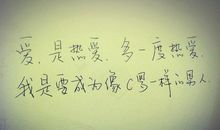 爱，是热爱，多一度热爱，
我是要成为像C罗一样的男人